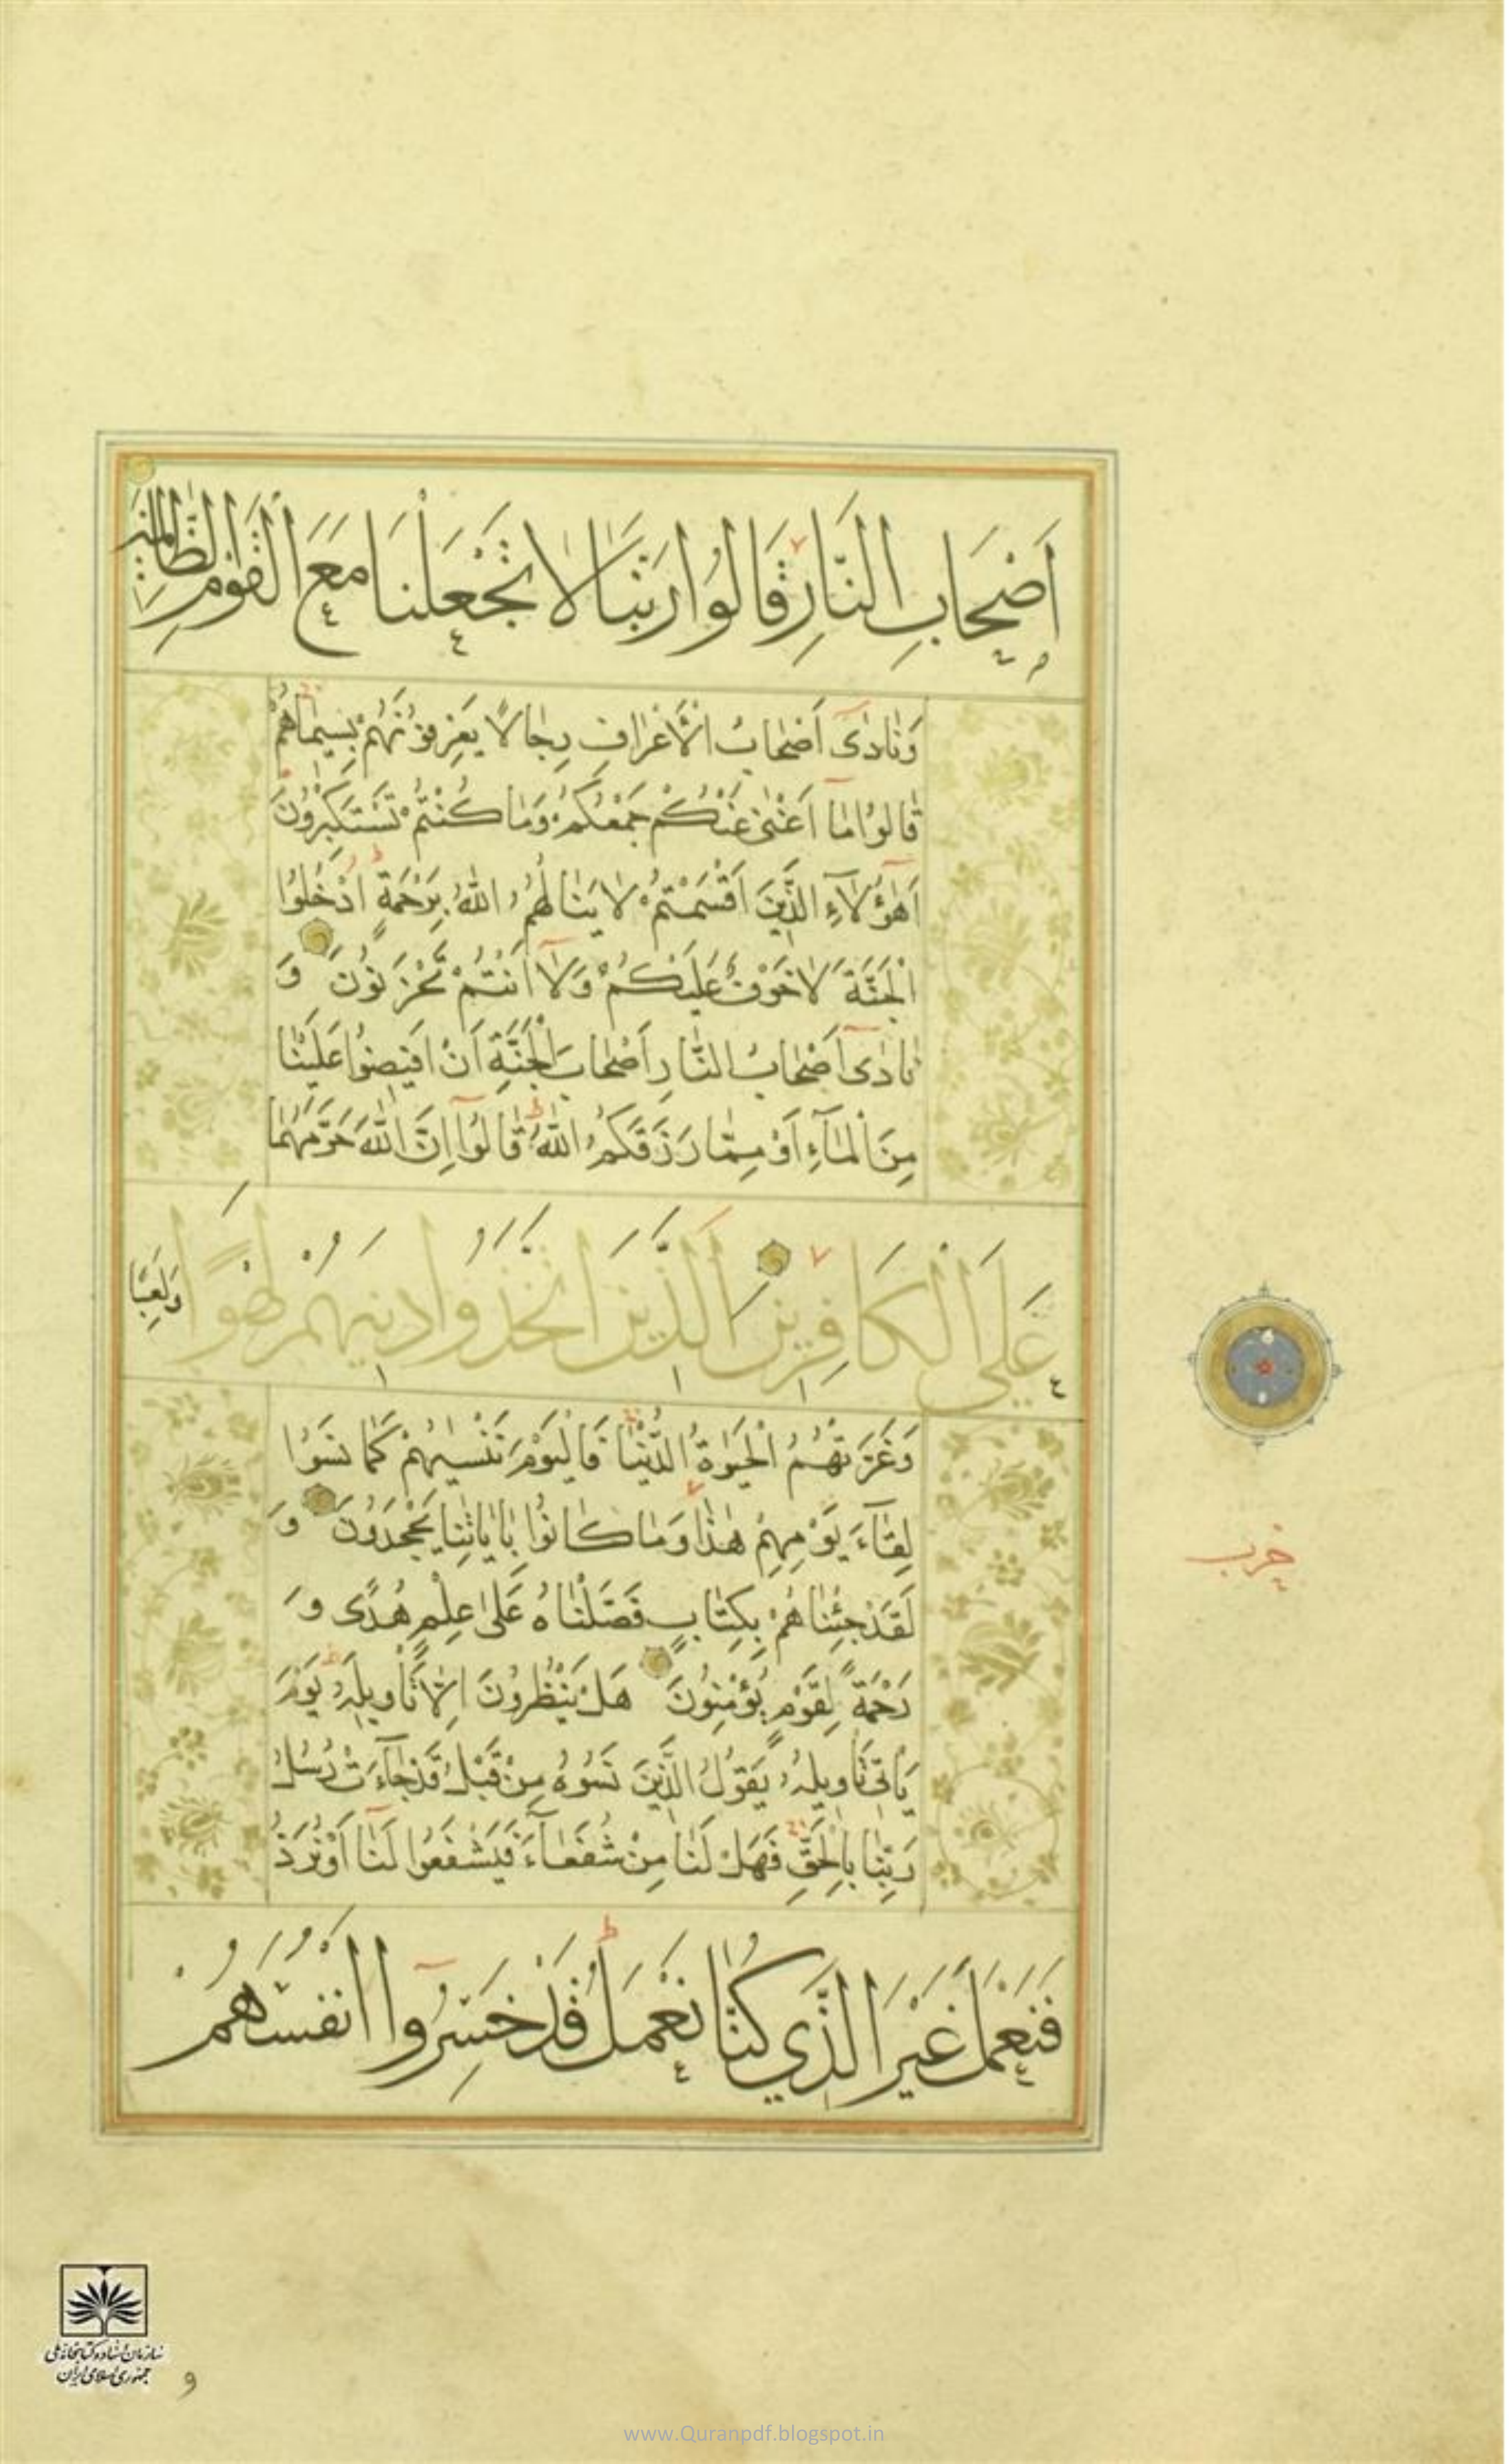 اَصْحَابِ النَّارِ قَالُوا رَبَّنَا لَا تَجْعَلْنَا مَعَ الْقَوْمِ الظَّالِمِينَ
وَنَادٰىٓ اَصْحَابُ الْاَعْرَافِ رِجَالًا يَعْرِفُونَهُمْ بِسِيمَاهُمْ
قَالُوا مَآ اَغْنٰى عَنْكُمْ جَمْعُكُمْ وَمَا كُنْتُمْ تَسْتَكْبِرُونَ
اَهٰٓؤُلَآءِ الَّذِينَ اَقْسَمْتُمْ لَا يَنَالُهُمُ اللّٰهُ بِرَحْمَةٍ اُدْخُلُوا
الْجَنَّةَ لَا خَوْفٌ عَلَيْكُمْ وَلَآ اَنْتُمْ تَحْزَنُونَ وَ
نَادٰىٓ اَصْحَابُ النَّارِ اَصْحَابَ الْجَنَّةِ اَنْ اَفِيضُوا عَلَيْنَا
مِنَ الْمَآءِ اَوْ مِمَّا رَزَقَكُمُ اللّٰهُ قَالُوٓا اِنَّ اللّٰهَ حَرَّمَهُمَا
عَلَى الْكَافِرِينَ الَّذِينَ اتَّخَذُوا دِينَهُمْ لَهْوًا وَلَعِبًا
وَغَرَّتْهُمُ الْحَيٰوةُ الدُّنْيَا فَالْيَوْمَ نَنْسٰيهُمْ كَمَا نَسُوا
لِقَآءَ يَوْمِهِمْ هٰذَا وَمَا كَانُوا بِاٰيَاتِنَا يَجْحَدُونَ وَ
لَقَدْ جِئْنَاهُمْ بِكِتَابٍ فَصَّلْنَاهُ عَلٰى عِلْمٍ هُدًى وَ
رَحْمَةً لِقَوْمٍ يُؤْمِنُونَ هَلْ يَنْظُرُونَ اِلَّا تَاْوِيلَهُ يَوْمَ
يَاْتِى تَاْوِيلُهُ يَقُولُ الَّذِينَ نَسُوهُ مِنْ قَبْلُ قَدْ جَآءَتْ رُسُلُ
رَبِّنَا بِالْحَقِّ فَهَلْ لَنَا مِنْ شُفَعَآءَ فَيَشْفَعُوا لَنَآ اَوْ نُرَدُّ
فَنَعْمَلَ غَيْرَ الَّذِي كُنَّا نَعْمَلُ قَدْ خَسِرُوٓا اَنْفُسَهُمْ
حزب
سازمان اسناد و کتابخانه ملی
جمهوری اسلامی ایران
و
www.Quranpdf.blogspot.in